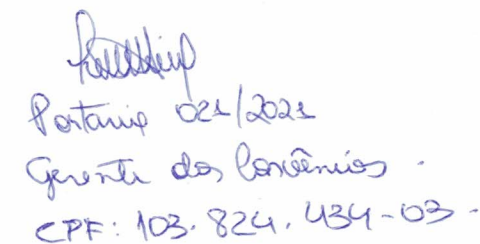 Portaria 021/2021
Gerente dos Convênios.
CPF: 103.824.434-03.